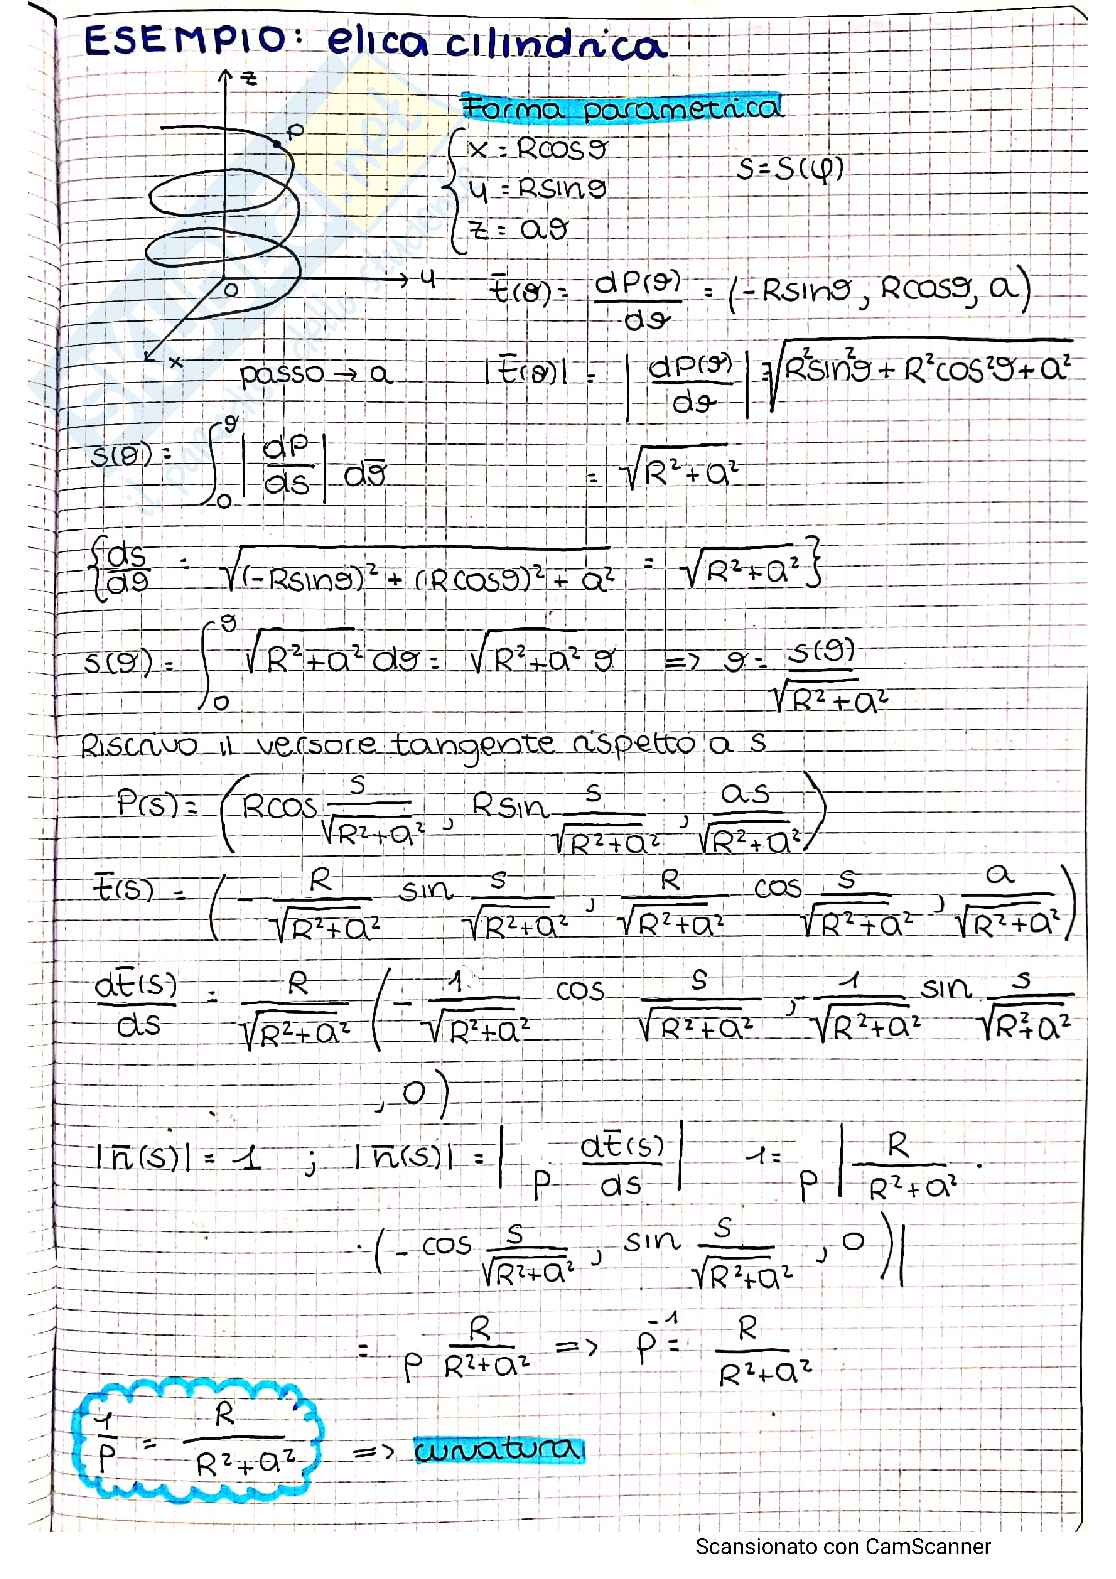 ESEMPIO: elica cilindrica
z
P
O
y
x
passo → a
Forma parametrica
{ x = Rcosϑ
y = Rsinϑ
z = aϑ
s = s(φ)
t̄(ϑ) = dP(ϑ)/dϑ = (-Rsinϑ, Rcosϑ, a)
|t̄(ϑ)| = |dP(ϑ)/dϑ| = √(R²sin²ϑ + R²cos²ϑ + a²)
= √(R²+a²)
s(ϑ) = ∫₀^ϑ |dP/ds| dϑ̄
{ds/dϑ = √((-Rsinϑ)² + (Rcosϑ)² + a²) = √(R²+a²)}
s(ϑ) = ∫₀^ϑ √(R²+a²) dϑ = √(R²+a²) ϑ => ϑ = s(ϑ)/√(R²+a²)
Riscrivo il versore tangente rispetto a s
P(s) = (Rcos s/√(R²+a²), Rsin s/√(R²+a²), as/√(R²+a²))
t̄(s) = (- R/√(R²+a²) sin s/√(R²+a²), R/√(R²+a²) cos s/√(R²+a²), a/√(R²+a²))
dt̄(s)/ds = R/√(R²+a²) (- 1/√(R²+a²) cos s/√(R²+a²), - 1/√(R²+a²) sin s/√(R²+a²)
, 0)
|n̄(s)| = 1 ; |n̄(s)| = |ρ dt̄(s)/ds| 1 = ρ |R/(R²+a²) ·
· (- cos s/√(R²+a²), sin s/√(R²+a²), 0)|
= ρ R/(R²+a²) => ρ⁻¹ = R/(R²+a²)
1/ρ = R/(R²+a²) => curvatura
Scansionato con CamScanner